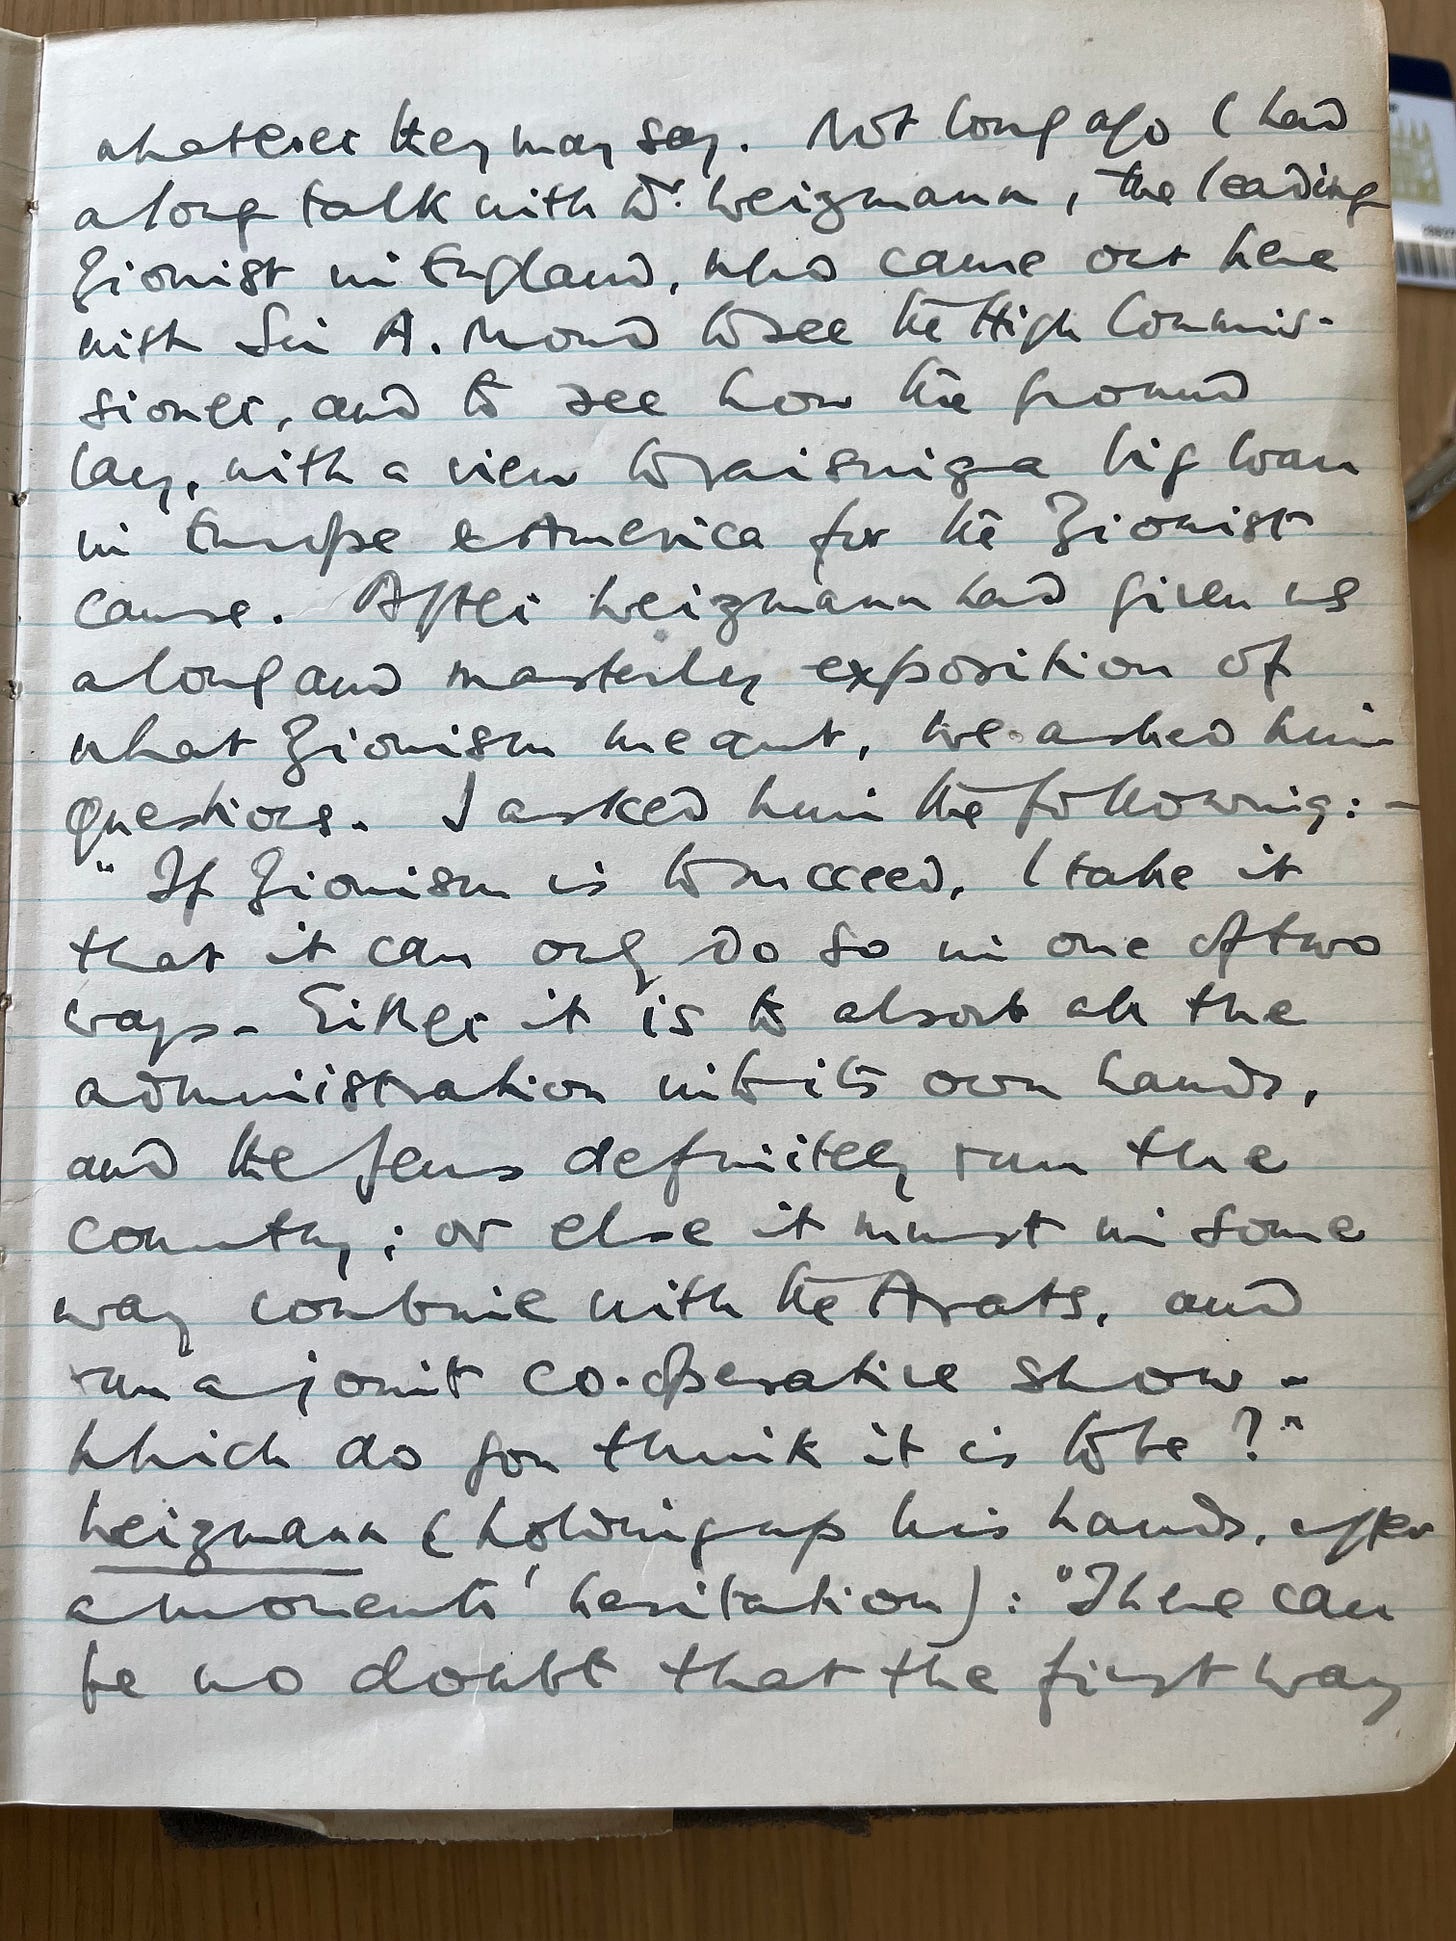 whatever they may say. Not long ago I had
a long talk with Dr. Weizmann, the leading
Zionist in England, who came out here
with Sir A. Mond to see the High Commis-
sioner, and to see how the ground
lay, with a view to raising a big loan
in Europe & America for the Zionist
cause. After Weizmann had given us
a long and masterly exposition of
what Zionism meant, we asked him
questions. I asked him the following:-
"If Zionism is to succeed, I take it
that it can only do so in one of two
ways- Either it is to absorb all the
administration into its own hands,
and the Jews definitely run the
country; or else it must in some
way combine with the Arabs, and
run a joint co-operative show -
Which do you think it is to be?"
Weizmann (holding up his hands, after
a moments' hesitation): "There can
be no doubt that the first way